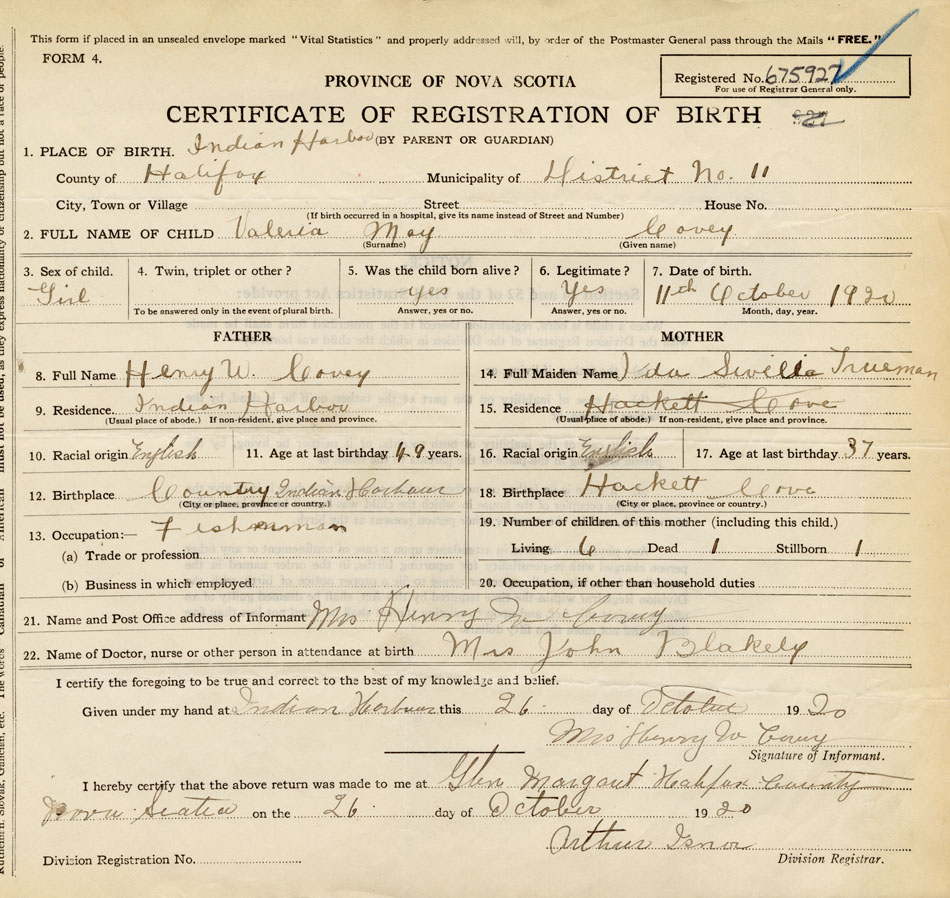 This form if placed in an unsealed envelope marked "Vital Statistics" and properly addressed will, by order of the Postmaster General pass through the Mails "FREE."
FORM 4.
Registered No. 675927
For use of Registrar General only.
PROVINCE OF NOVA SCOTIA
CERTIFICATE OF REGISTRATION OF BIRTH
(BY PARENT OR GUARDIAN)
1. PLACE OF BIRTH. Indian Harbor
County of Halifax Municipality of District No. 11
City, Town or Village Street House No.
(If birth occurred in a hospital, give its name instead of Street and Number)
2. FULL NAME OF CHILD Valeria May Covey
(Surname) (Given name)
3. Sex of child. 4. Twin, triplet or other? 5. Was the child born alive? 6. Legitimate? 7. Date of birth.
Girl yes Yes 11th October 1920
To be answered only in the event of plural birth. Answer, yes or no. Answer, yes or no. Month, day, year.
FATHER MOTHER
8. Full Name Henry W. Covey
14. Full Maiden Name Ida Sivilla Trueman
9. Residence. Indian Harbor
(Usual place of abode.) If non-resident, give place and province.
15. Residence Hackett Cove
(Usual place of abode.) If non-resident, give place and province.
10. Racial origin English 11. Age at last birthday 49 years.
16. Racial origin English 17. Age at last birthday 37 years.
12. Birthplace Country Indian Harbour
(City or place, province or country.)
18. Birthplace Hackett Cove
(City or place, province or country.)
13. Occupation:— Fisherman
(a) Trade or profession
(b) Business in which employed
19. Number of children of this mother (including this child.)
Living 6 Dead 1 Stillborn 1
20. Occupation, if other than household duties
21. Name and Post Office address of Informant Mrs Henry W Covey
22. Name of Doctor, nurse or other person in attendance at birth Mrs John Blakely
I certify the foregoing to be true and correct to the best of my knowledge and belief.
Given under my hand at Indian Harbour this 26 day of October 1920
Mrs Henry W Covey
Signature of Informant.
I hereby certify that the above return was made to me at Glen Margaret Halifax County
Nova Scotia on the 26 day of October 1920
Arthur Isnor
Division Registration No. Division Registrar.